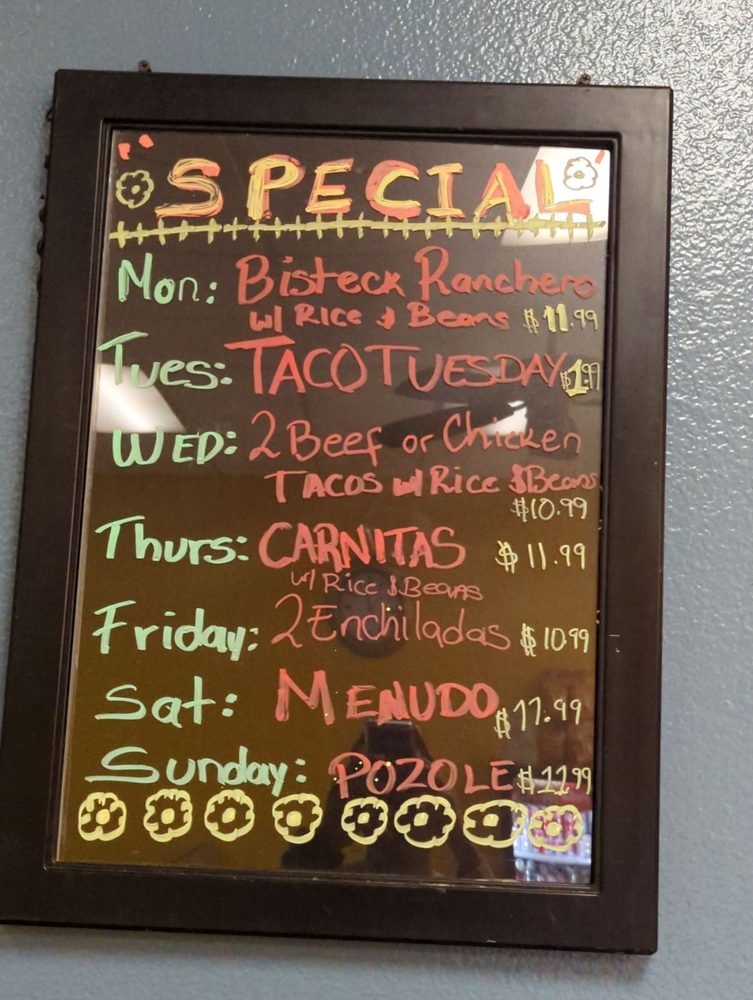 "SPECIAL"
Mon: Bisteck Ranchero
w/ Rice & Beans $11.99
Tues: TACO TUESDAY $1.99
WED: 2 Beef or Chicken
TACOS w/ Rice & Beans
$10.99
Thurs: CARNITAS $11.99
w/ Rice & Beans
Friday: 2 Enchiladas $10.99
Sat: MENUDO $11.99
Sunday: POZOLE $11.99